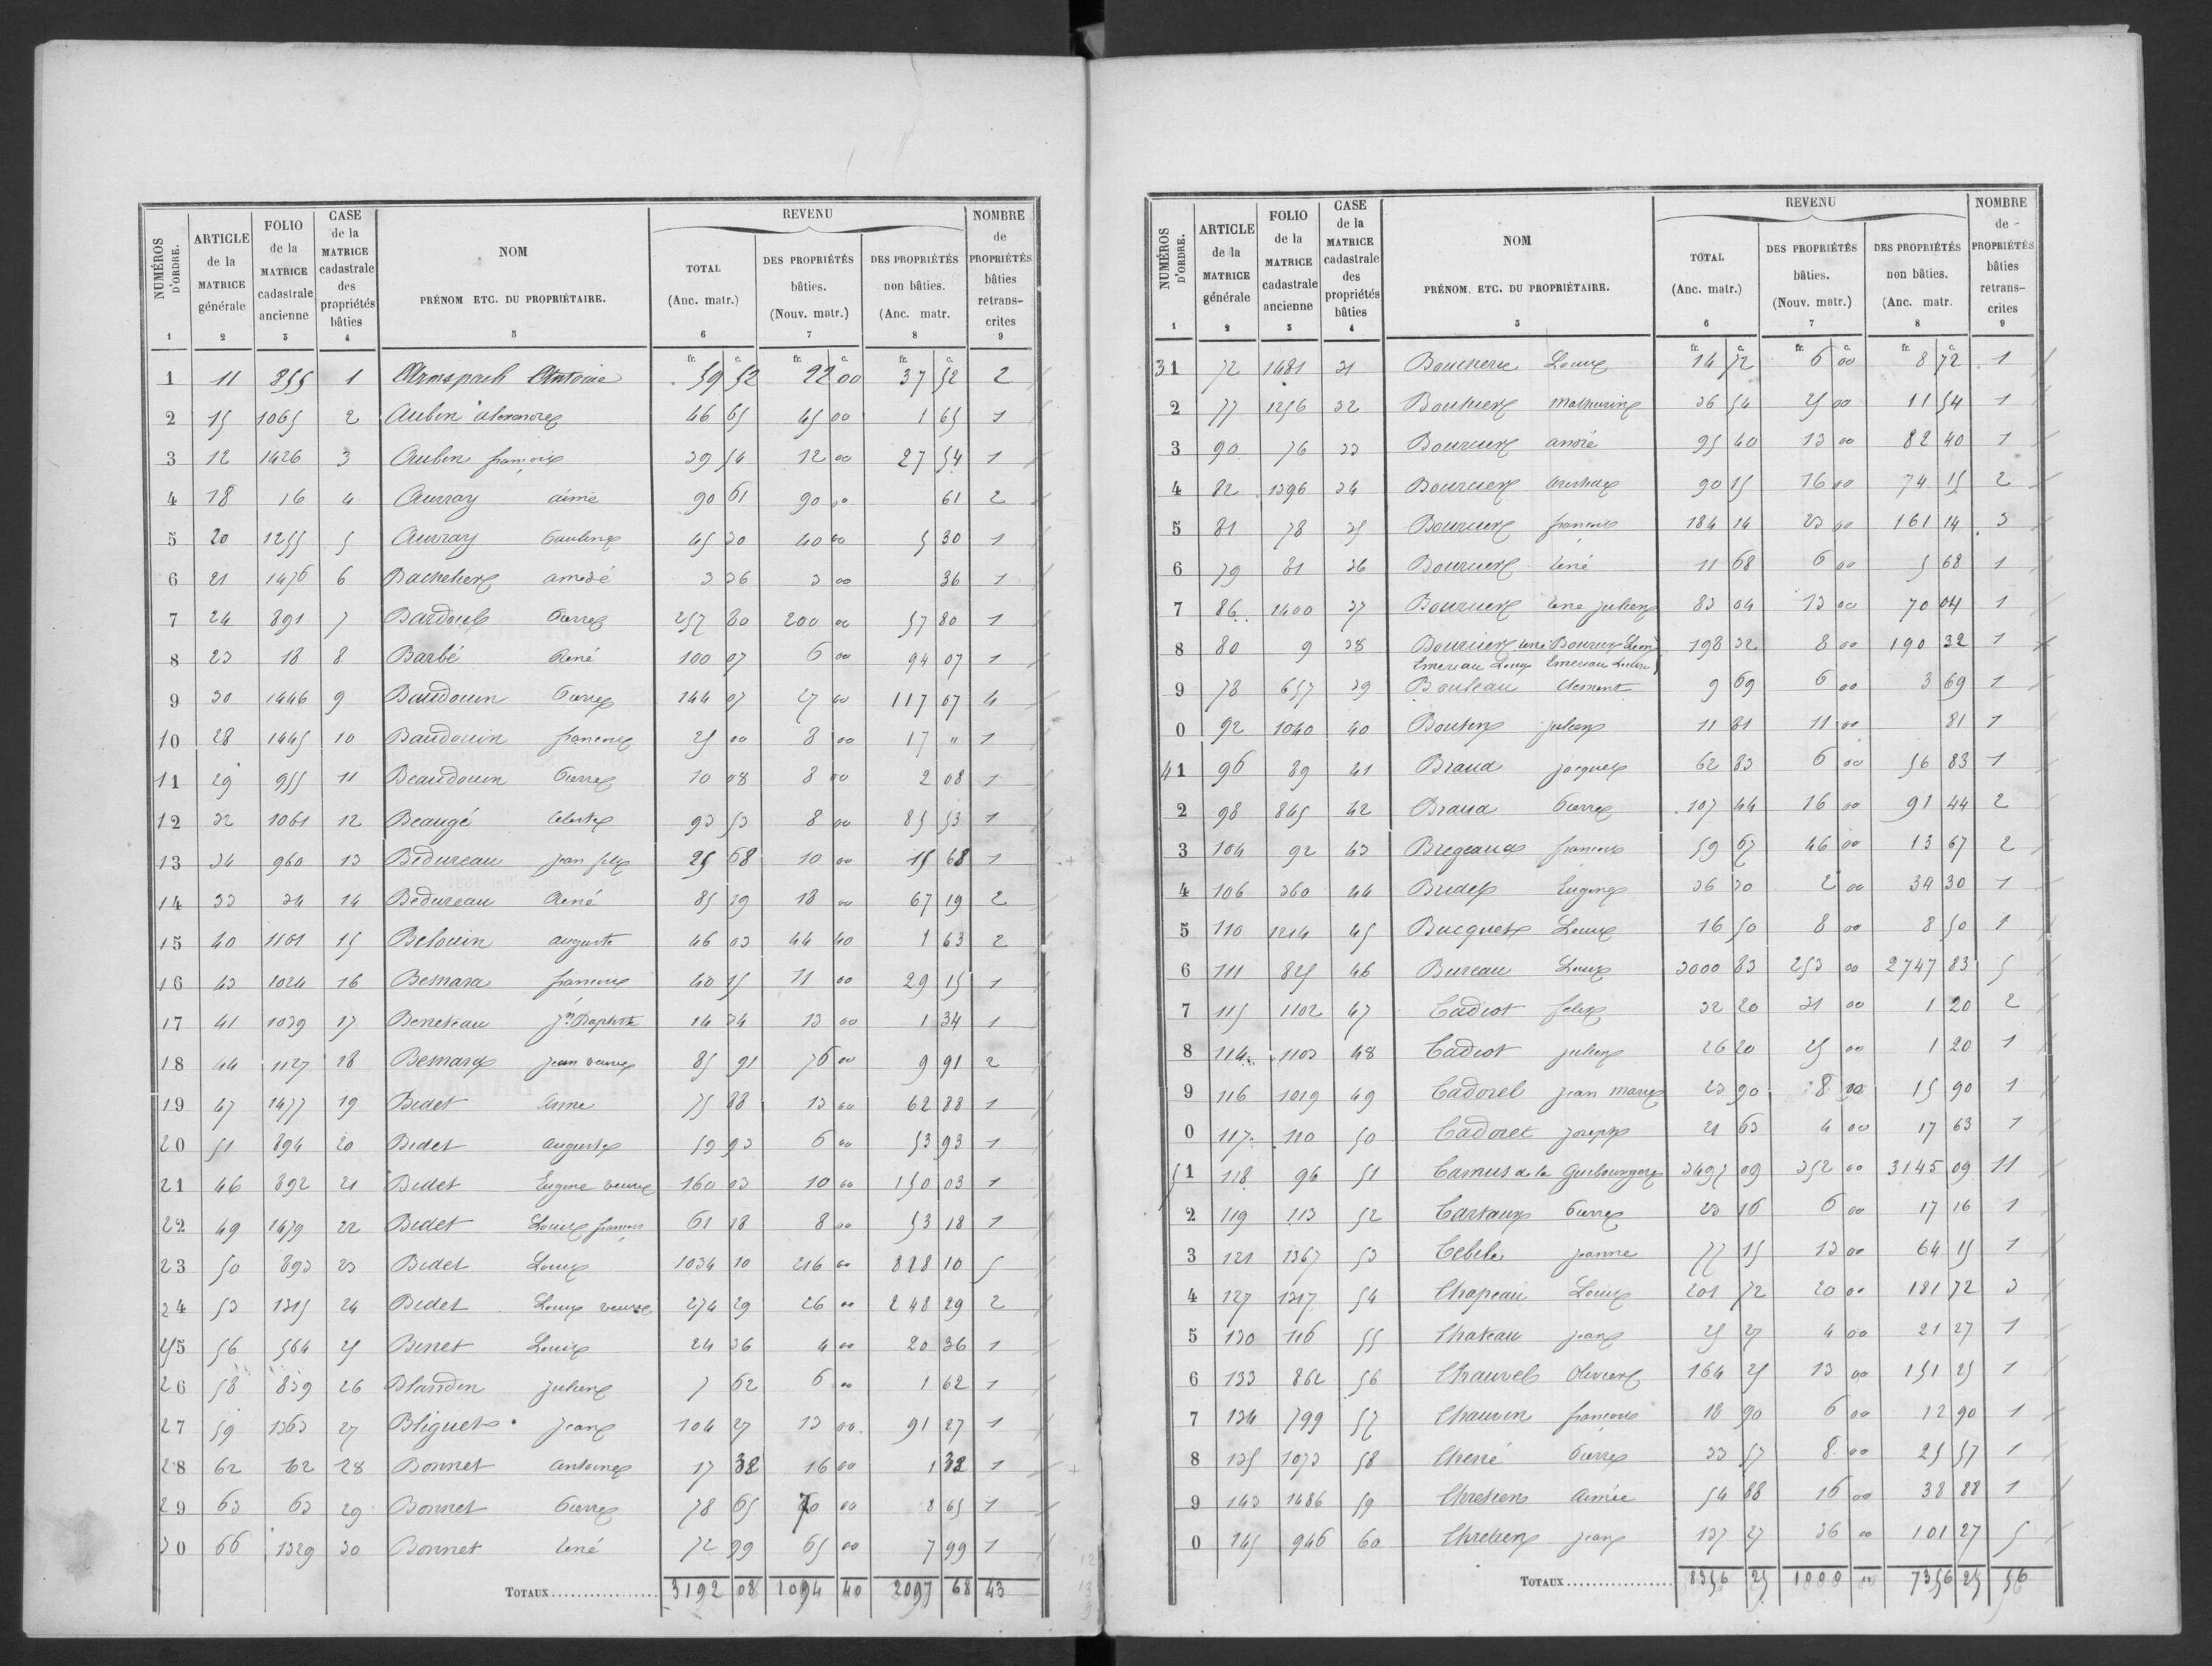 NUMÉROS D'ORDRE. ARTICLE de la MATRICE générale FOLIO de la MATRICE cadastrale ancienne CASE de la MATRICE cadastrale des propriétés bâties NOM PRÉNOM ETC. DU PROPRIÉTAIRE. REVENU TOTAL (Anc. matr.) DES PROPRIÉTÉS bâties. (Nouv. matr.) DES PROPRIÉTÉS non bâties. (Anc. matr. NOMBRE de PROPRIÉTÉS bâties retranscrites
1 2 3 4 5 6 7 8 9
fr. c. fr. c. fr. c.
1 11 855 1 Armspach Antoine 59 52 22 00 37 52 2
2 15 1065 2 Aubin alexandre 46 65 45 00 1 65 1
3 12 1426 3 Aubin françois 39 54 12 00 27 54 1
4 18 16 4 Auvray aimé 90 61 90 00 61 2
5 20 1255 5 Auvray Pauline 45 30 40 00 5 30 1
6 21 1476 6 Bachelier amédé 3 36 3 00 36 1
7 24 891 7 Bardoul Pierre 257 80 200 00 57 80 1
8 23 18 8 Barbé René 100 07 6 00 94 07 1
9 30 1446 9 Baudouin Pierre 144 07 27 00 117 07 4
10 28 1445 10 Baudouin françois 25 00 8 00 17 " 1
11 29 955 11 Beaudouin Pierre 10 08 8 00 2 08 1
12 32 1061 12 Beaugé Céleste 93 53 8 00 85 53 1
13 34 960 13 Bédureau jean félix 25 68 10 00 15 68 1
14 33 34 14 Bédureau René 85 19 18 00 67 19 2
15 40 1101 15 Belouin auguste 46 03 44 40 1 63 2
16 43 1024 16 Bemara françois 40 15 11 00 29 15 1
17 41 1039 17 Beneteau Jn Baptiste 14 34 13 00 1 34 1
18 44 1127 18 Bemara jean veuve 85 91 76 00 9 91 2
19 47 1477 19 Bidet anne 75 88 13 00 62 88 1
20 51 894 20 Bidet auguste 59 93 6 00 53 93 1
21 46 892 21 Bidet Eugène veuve 160 03 10 00 150 03 1
22 49 1479 22 Bidet Louis françois 61 18 8 00 53 18 1
23 50 893 23 Bidet Louis 1034 10 216 00 818 10 5
24 53 1315 24 Bidet Louis veuve 274 29 26 00 248 29 2
25 56 564 25 Binet Louis 24 36 4 00 20 36 1
26 58 839 26 Blandin julien 7 62 6 00 1 62 1
27 59 1363 27 Bliguet jean 104 27 13 00 91 27 1
28 62 62 28 Bonnet antoine 17 38 16 00 1 38 1
29 63 63 29 Bonnet Pierre 78 65 70 00 8 65 1
30 66 1329 30 Bonnet René 72 99 65 00 7 99 1
TOTAUX 3192 08 1094 40 2097 68 43
NUMÉROS D'ORDRE. ARTICLE de la MATRICE générale FOLIO de la MATRICE cadastrale ancienne CASE de la MATRICE cadastrale des propriétés bâties NOM PRÉNOM, ETC. DU PROPRIÉTAIRE. REVENU TOTAL (Anc. matr.) DES PROPRIÉTÉS bâties. (Nouv. matr.) DES PROPRIÉTÉS non bâties. (Anc. matr. NOMBRE de PROPRIÉTÉS bâties retranscrites
1 2 3 4 5 6 7 8 9
fr. c. fr. c. fr. c.
31 72 1481 31 Boucherie Louis 14 72 6 00 8 72 1
2 77 1256 32 Bouhier Mathurin 36 54 25 00 11 54 1
3 90 76 33 Bourcier andré 95 40 13 00 82 40 1
4 82 1396 34 Bourcier aristide 90 15 16 00 74 15 2
5 81 78 35 Bourcier françois 184 14 23 00 161 14 3
6 79 81 36 Bourcier René 11 68 6 00 5 68 1
7 86 1400 37 Bourcier René julien 83 04 13 00 70 04 1
8 80 9 38 Bourcier René Bourcier Léon 198 32 8 00 190 32 1
Emeriau Louis Emeriau
9 78 657 39 Bouteau Clement 9 69 6 00 3 69 1
0 92 1040 40 Boutin julien 11 81 11 00 81 1
41 96 89 41 Braud jacques 62 83 6 00 56 83 1
2 98 845 42 Braud Pierre 107 44 16 00 91 44 2
3 104 92 43 Bregeaud françois 59 67 46 00 13 67 2
4 106 360 44 Eugène 36 30 2 00 34 30 1
5 110 1214 45 Bucquet Louis 16 50 8 00 8 50 1
6 111 825 46 Bureau Louis 3000 83 253 00 2747 83 5
7 115 1102 47 Cadiot felix 32 20 31 00 1 20 2
8 114 1103 48 Cadiot julien 26 20 25 00 1 20 1
9 116 1019 49 Cadorel jean marie 23 90 8 00 15 90 1
0 117 110 50 Cadoret joseph 21 63 4 00 17 63 1
51 118 96 51 Camus de la Guibourgere 3497 09 352 00 3145 09 11
2 119 113 52 Cartaux Pierre 23 16 6 00 17 16 1
3 121 1367 53 jeanne 77 15 13 00 64 15 1
4 127 1317 54 Chapeau Louis 201 72 20 00 181 72 3
5 130 116 55 Chateau jean 25 27 4 00 21 27 1
6 133 862 56 Chauvel Olivier 164 25 13 00 151 25 1
7 134 799 57 Chauvin françois 18 90 6 00 12 90 1
8 135 1073 58 Chené Pierre 33 57 8 00 25 57 1
9 143 1486 59 Chretien Aimée 54 88 16 00 38 88 1
0 145 946 60 Chretien jean 137 27 36 00 101 27 5
TOTAUX 8356 25 1000 " 7356 25 56